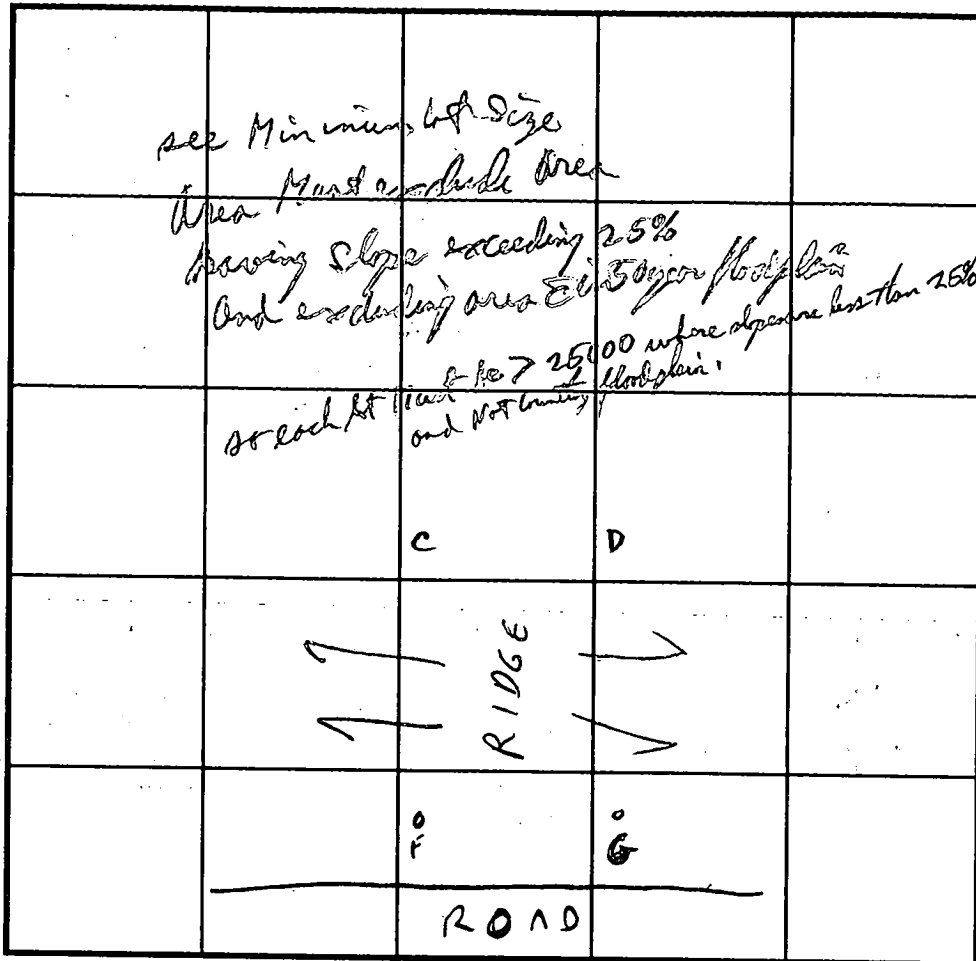 see Minimum lot Size
Area Must exclude Area
having Slope exceeding 25%
And excluding area 50 year floodplain
so each lot must be > 25000 where slopes are less than 25%
and Not Counting floodplain.
C D
RIDGE
F G
ROAD